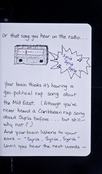 Or that song you hear on the radio...
Your brain thinks it's hearing a
geo-political rap song about
the Mid East. (Although you've
never heard a Caribbean rap song
about Syria before... but still...
why not?)
And your brain listens to your
ears - "Syria, Syria, Syria."
Until you hear the next words -